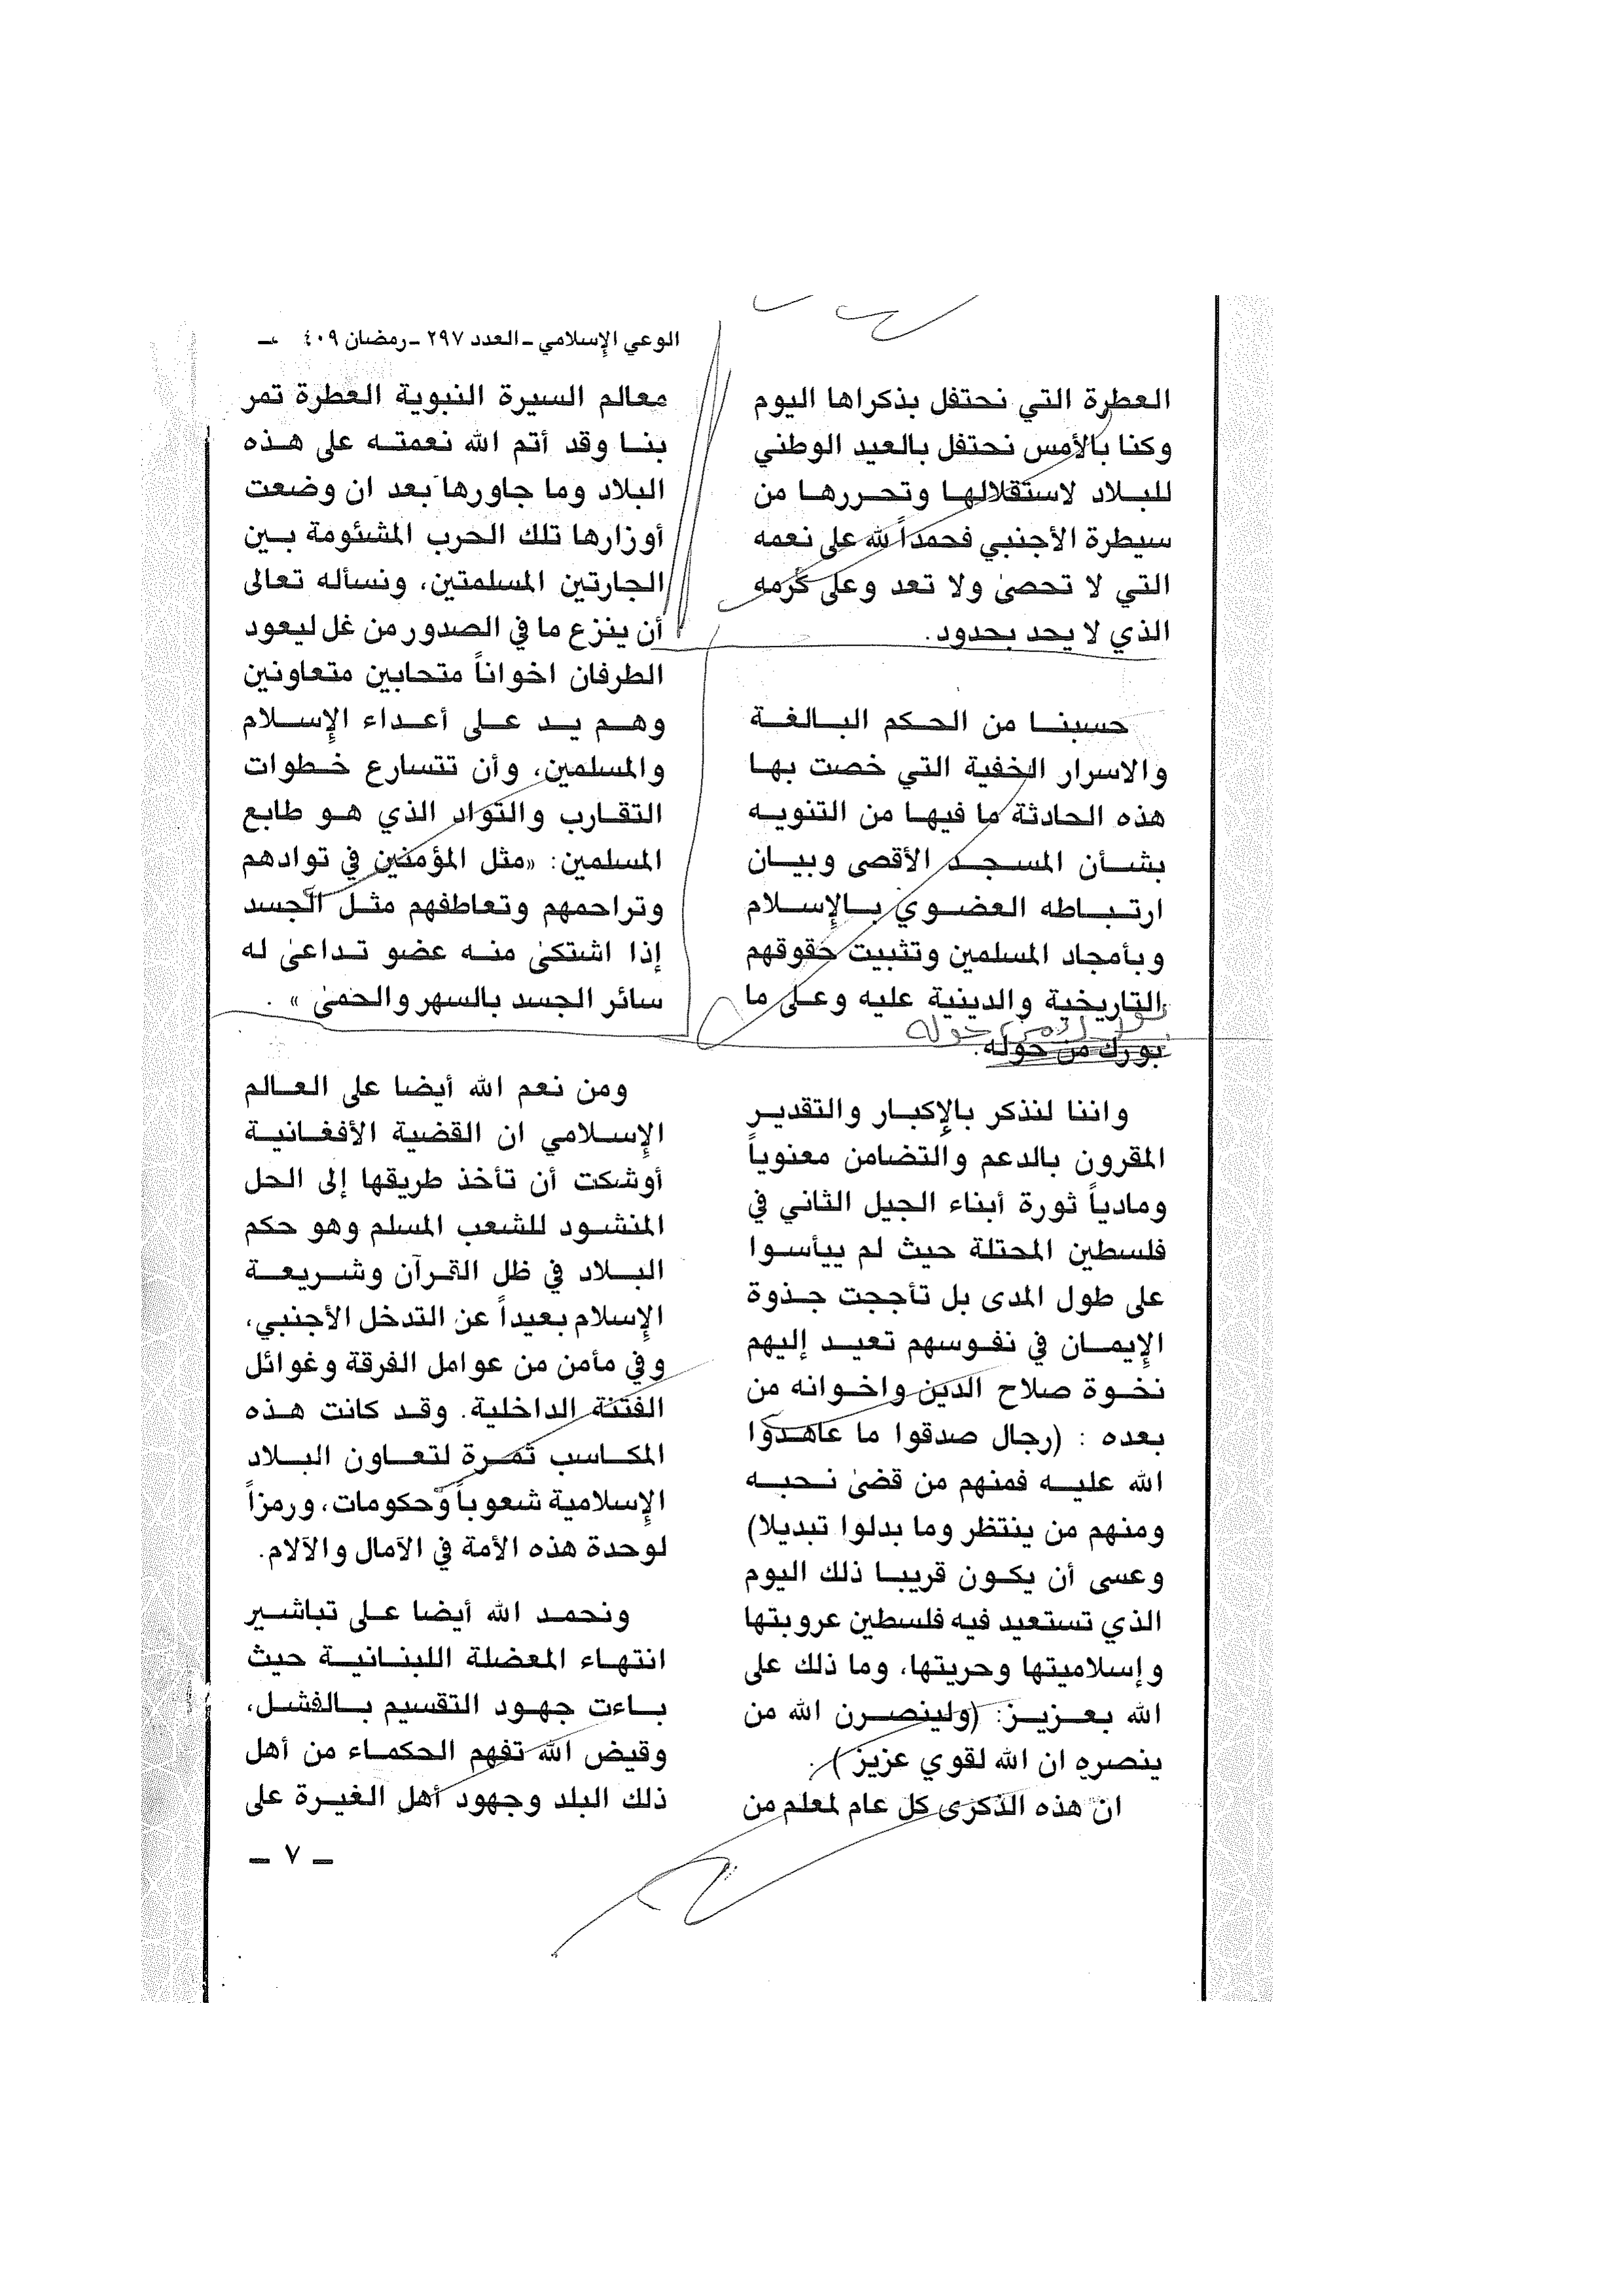 الوعي الإسلامي ـ العدد ٢٩٧ ـ رمضان ٤٠٩
العطرة التي نحتفل بذكراها اليوم
وكنا بالأمس نحتفل بالعيد الوطني
للبلاد لاستقلالها وتحررها من
سيطرة الأجنبي فحمداً لله على نعمه
التي لا تحصى ولا تعد وعلى كرمه
الذي لا يحد بحدود.
حسبنا من الحكم البالغة
والاسرار الخفية التي خصت بها
هذه الحادثة ما فيها من التنويه
بشأن المسجد الأقصى وبيان
ارتباطه العضوي بالإسلام
وبأمجاد المسلمين وتثبيت حقوقهم
التاريخية والدينية عليه وعلى ما
حوله
بورك من حوله.
واننا لنذكر بالإكبار والتقدير
المقرون بالدعم والتضامن معنوياً
ومادياً ثورة أبناء الجيل الثاني في
فلسطين المحتلة حيث لم ييأسوا
على طول المدى بل تأججت جذوة
الإيمان في نفوسهم تعيد إليهم
نخوة صلاح الدين واخوانه من
بعده : (رجال صدقوا ما عاهدوا
الله عليه فمنهم من قضى نحبه
ومنهم من ينتظر وما بدلوا تبديلا)
وعسى أن يكون قريبا ذلك اليوم
الذي تستعيد فيه فلسطين عروبتها
وإسلاميتها وحريتها، وما ذلك على
الله بعزيز: (ولينصرن الله من
ينصره ان الله لقوي عزيز).
ان هذه الذكرى كل عام لمعلم من
معالم السيرة النبوية العطرة تمر
بنا وقد أتم الله نعمته على هذه
البلاد وما جاورها بعد ان وضعت
أوزارها تلك الحرب المشئومة بين
الجارتين المسلمتين، ونسأله تعالى
أن ينزع ما في الصدور من غل ليعود
الطرفان اخواناً متحابين متعاونين
وهم يد على أعداء الإسلام
والمسلمين، وأن تتسارع خطوات
التقارب والتواد الذي هو طابع
المسلمين: «مثل المؤمنين في توادهم
وتراحمهم وتعاطفهم مثل الجسد
إذا اشتكى منه عضو تداعى له
سائر الجسد بالسهر والحمى» .
ومن نعم الله أيضا على العالم
الإسلامي ان القضية الأفغانية
أوشكت أن تأخذ طريقها إلى الحل
المنشود للشعب المسلم وهو حكم
البلاد في ظل القرآن وشريعة
الإسلام بعيداً عن التدخل الأجنبي،
وفي مأمن من عوامل الفرقة وغوائل
الفتنة الداخلية. وقد كانت هذه
المكاسب ثمرة لتعاون البلاد
الإسلامية شعوباً وحكومات، ورمزاً
لوحدة هذه الأمة في الآمال والآلام.
ونحمد الله أيضا على تباشير
انتهاء المعضلة اللبنانية حيث
باءت جهود التقسيم بالفشل،
وقيض الله تفهم الحكماء من أهل
ذلك البلد وجهود أهل الغيرة على
ـ ٧ ـ